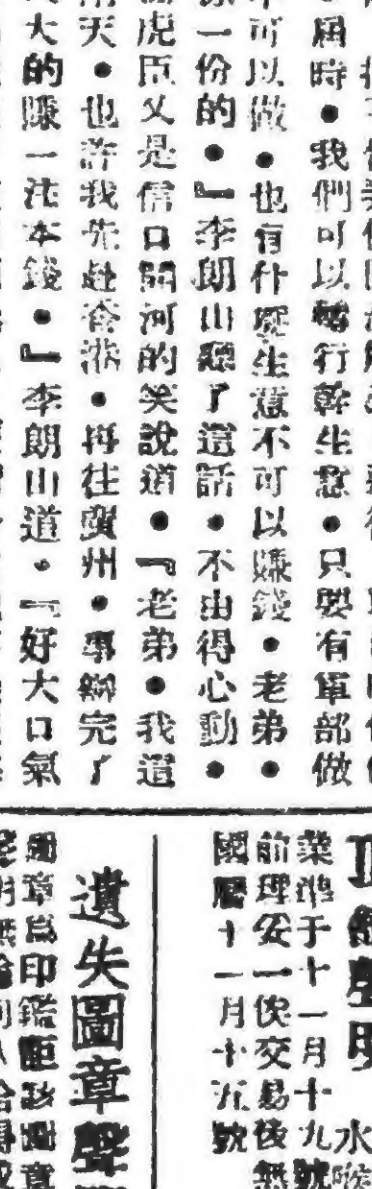 屆時●我們可以轉行幹生意●只要有軍部做
可以做●也有什麼生意不可以賺錢●老弟●
一份的●』李朗山聽了這話●不由得心動●
虎臣又是信口開河的笑說道●『老弟●我這
天●也許我先赴香港●再往廣州●事辦完了
大的賺一注本錢●』李朗山道●『好大口氣
頂 聲明 水
業準于十一月十九號
前理妥一俟交易後無
國曆十一月十五號
遺失圖章聲
圖章爲印鑑 該圖章